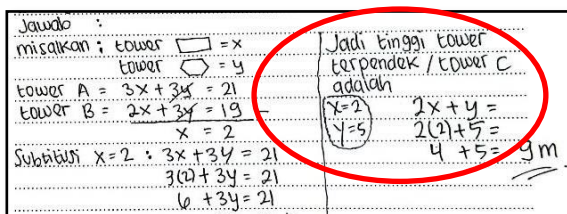 Jawab :
misalkan : tower ▭ = x
tower ⬡ = y
tower A = 3x + 3y = 21
tower B = 2x + 3y = 19 -
x = 2
Subtitusi x=2 : 3x + 3y = 21
3(2) + 3y = 21
6 + 3y = 21
Jadi tinggi tower
terpendek / tower C
adalah
x=2 2x + y =
y=5 2(2)+5 =
4 + 5 = 9 m